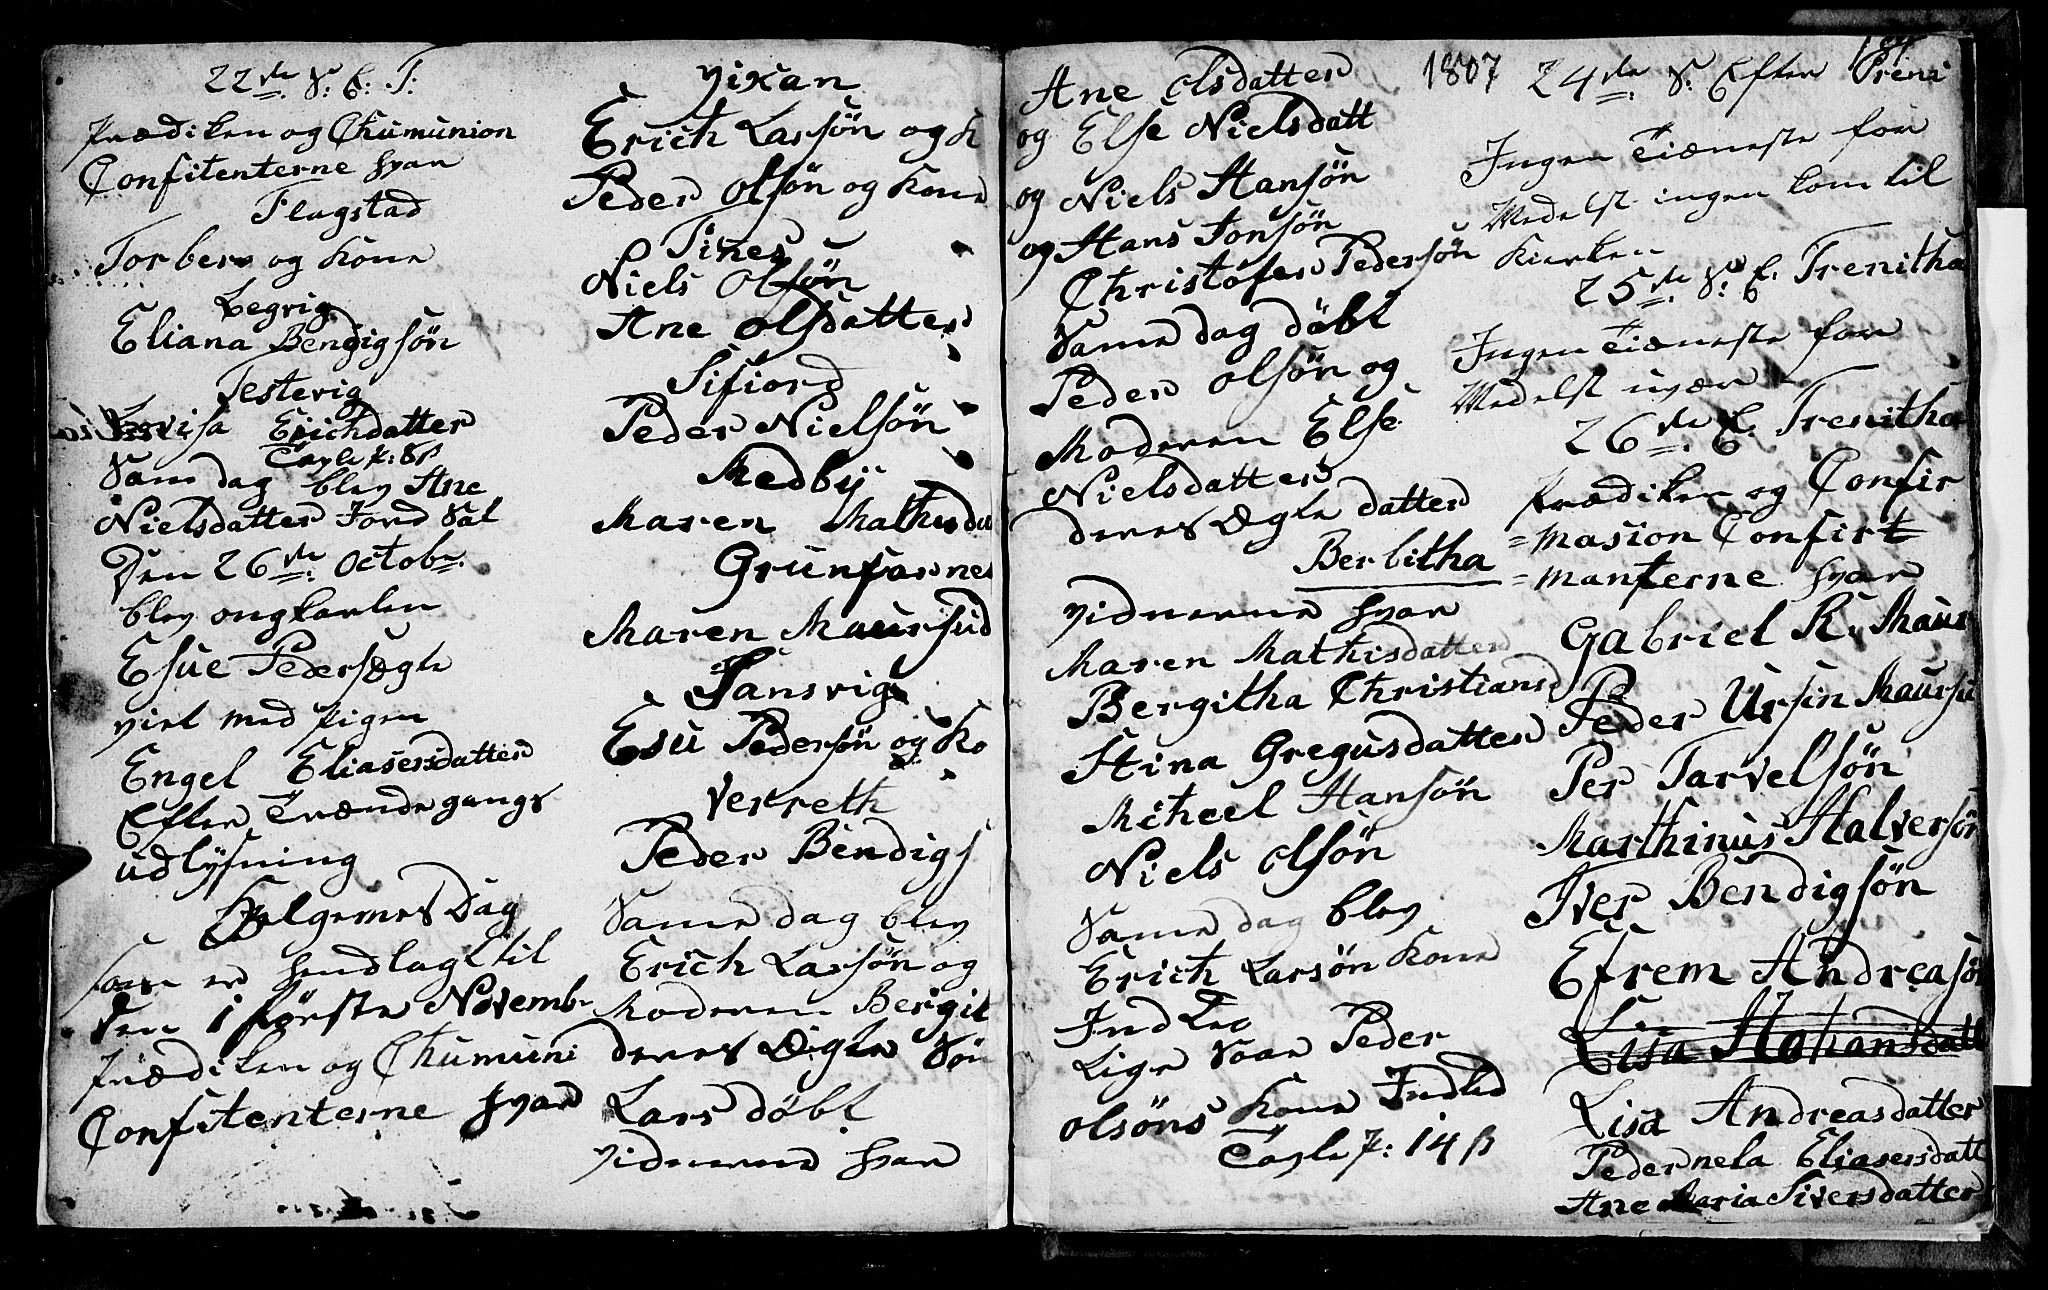 22de S: E: T:
Prædiken og Chumunion
Confitenterne hvar
Flagstad
Torber og Kone
Legvig
Eliana Bendigsøn
Testevig
Lovisa Erichdatter
Tavle p: 8 ß
Sam dag blev Ane
Nielsdatter Jord Sat
Den 26de Octobr.
blev ongkarlen
Esue Pedersøgte
viet med pigen
Engel Eliasersdatter
Efter Trænde gangs
udlysning
Helgemes Dag
som er henlagt til
den 1 første Novemb
Prædiken og Chumuni
Confitenterne hvar
Vixan
Erich Larsøn og K
Peder Olsøn og Kone
Tines
Niels Olsøn
Ane Olsdatter
Sifiord
Peder Nielsøn
Medbÿ
Maren Mathisda
Grunfarnes
Maren Maursud
Sansvig
Esu Pedersøn og Ko
Verreth
Peder Bendigs
Same dag blev
Erich Larsøn og
Moderen Bergit
deres Ægte Søn
Lars døbt
vidnerne hvar
Ane Olsdatter
og Else Nielsdatt
og Niels Hansøn
og Hans Jonsøn
Christofer Pedersøn
Same dag døbt
Peder Olsøn og
Moderen Else
Nielsdatter
deres Ægte datter
Berlitha
vidnerne hvar
Maren Mathisdatter
Bergitha Christians
Stina Gregusdatter
Micheel Hansøn
Niels Olsøn
Same dag blev
Erich Larsøn Kone
Indled
Lige Saa Peder
Olsøns Kone Indled
Tavle p: 14 ß
1807
24de S: Efter Treni
Ingen Tiæneste for
Medelst ingen kom til
Kierken
25de S: E: Trenitha
Ingen Tiæneste for
Medelst uvær
26de E. Trenitha
Prædiken og Confir
=masion Confirt
=manterne hvar
Gabriel K. Maur
Peder Ursin Maursu
Per Tarvelsøn
Marthinus Halversøn
Iver Bendigsøn
Efrem Andreasøn
Lisa Hohansdatt
Lisa Andreasdatter
Pedernela Eliasersdatt
Ane Maria Siversdatter